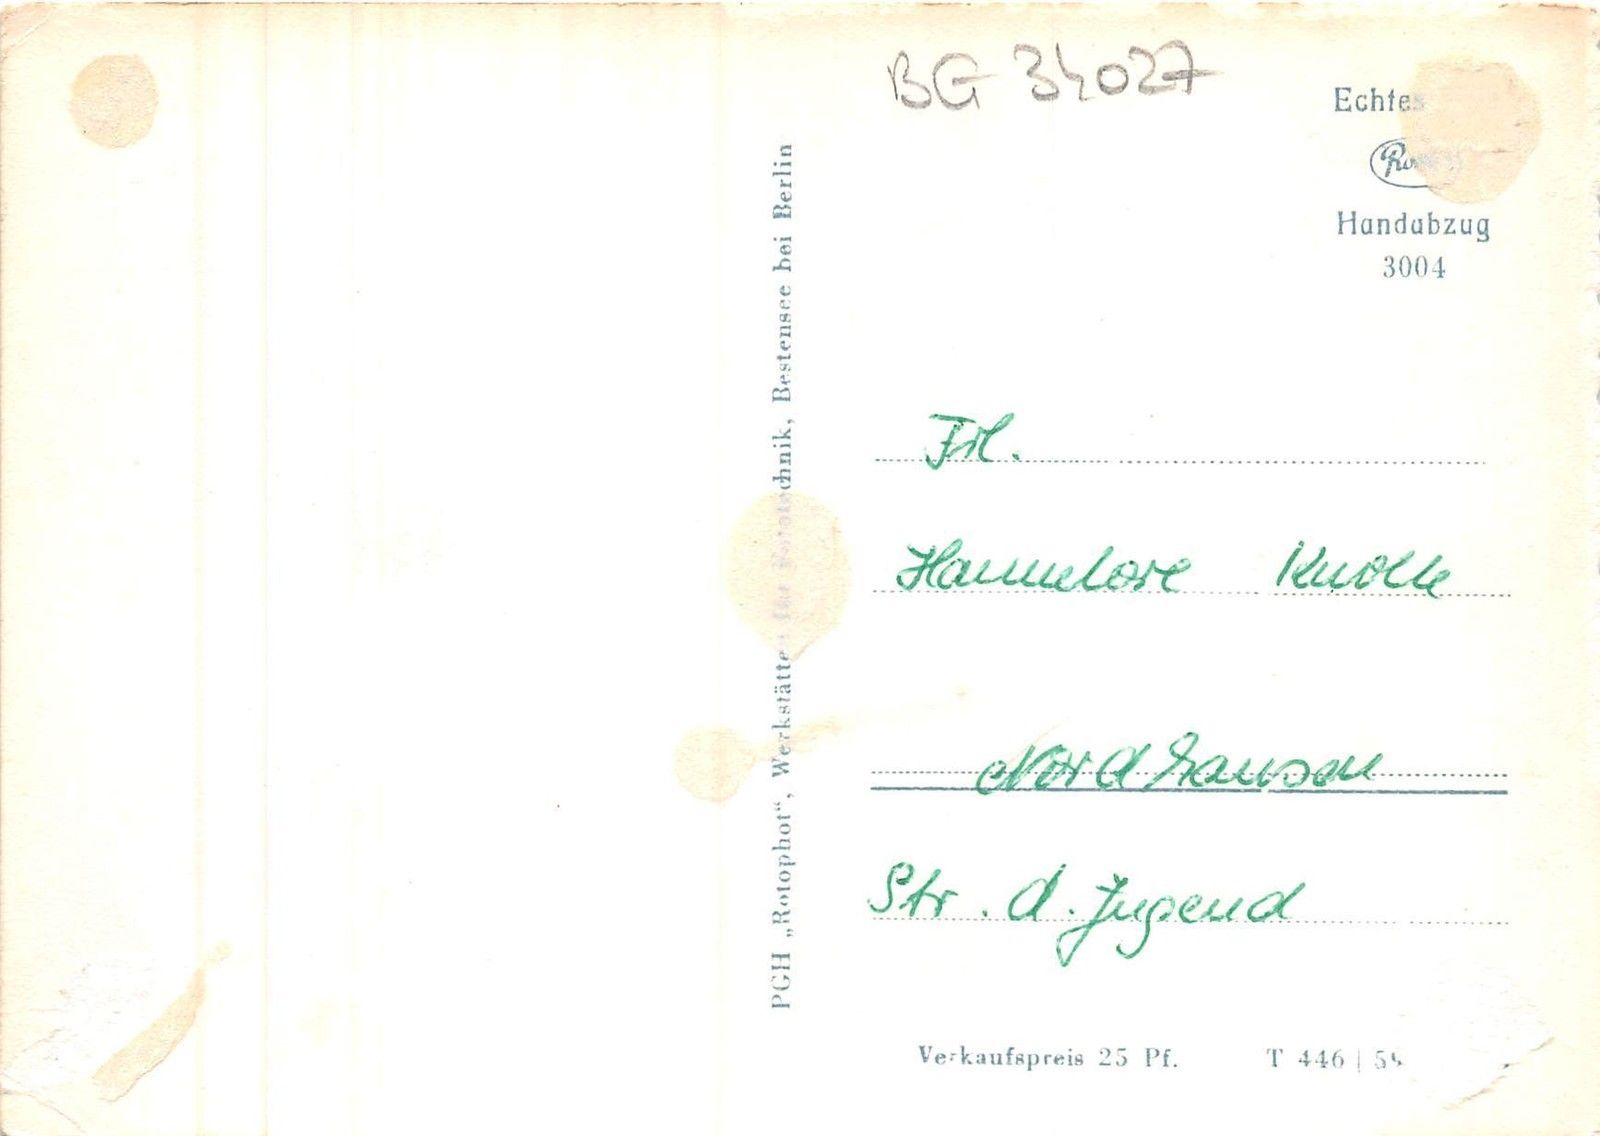 BG 34027
Echtes
Handabzug
3004
PGH „Rotophot“, Werkstätten für Fototechnik, Bestensee bei Berlin
Frl.
Hannelore Knolle
Nordhausen
Str. d. Jugend
Verkaufspreis 25 Pf. T 446 | 58